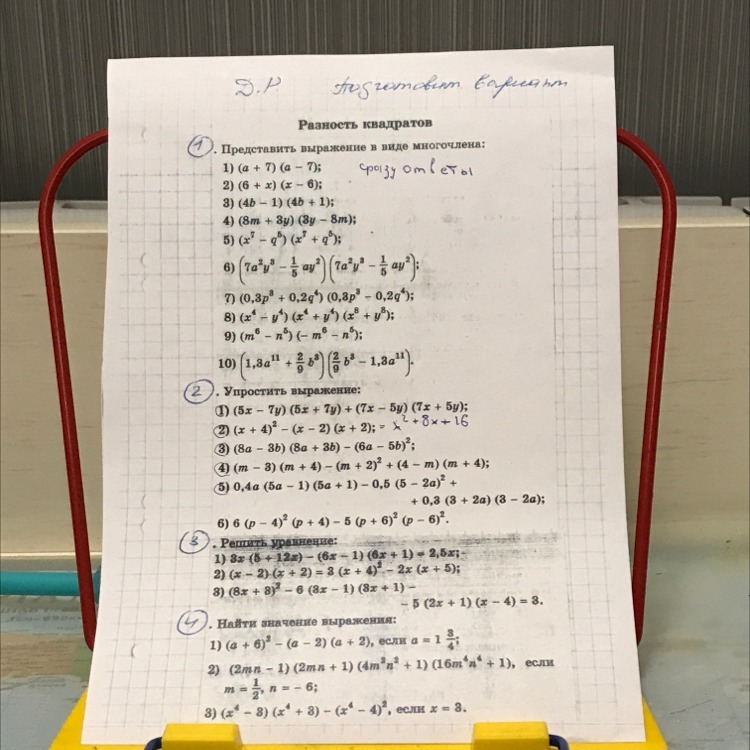 Д.Р. Подготовит вариант
Разность квадратов
1. Представить выражение в виде многочлена:
1) (a + 7) (a − 7); сразу ответы
2) (6 + x) (x − 6);
3) (4b − 1) (4b + 1);
4) (8m + 3y) (3y − 8m);
5) (x⁷ − q⁵) (x⁷ + q⁵);
6) (7a²y³ − 1/5 ay²) (7a²y³ − 1/5 ay²);
7) (0,3p³ + 0,2q⁴) (0,3p³ − 0,2q⁴);
8) (x⁴ − y⁴) (x⁴ + y⁴) (x⁸ + y⁸);
9) (m⁶ − n⁵) (− m⁶ − n⁵);
10) (1,3a¹¹ + 2/9 b³) (2/9 b³ − 1,3a¹¹).
2. Упростить выражение:
1) (5x − 7y) (5x + 7y) + (7x − 5y) (7x + 5y);
2) (x + 4)² − (x − 2) (x + 2); = x² + 8x + 16
3) (8a − 3b) (8a + 3b) − (6a − 5b)²;
4) (m − 3) (m + 4) − (m + 2)² + (4 − m) (m + 4);
5) 0,4a (5a − 1) (5a + 1) − 0,5 (5 − 2a)² +
+ 0,3 (3 + 2a) (3 − 2a);
6) 6 (p − 4)² (p + 4) − 5 (p + 6)² (p − 6)².
3. Решить уравнение:
1) 3x (5 + 12x) − (6x − 1) (6x + 1) = 2,5x;
2) (x − 2) (x + 2) = 3 (x + 4)² − 2x (x + 5);
3) (8x + 3)² − 6 (3x − 1) (3x + 1) −
− 5 (2x + 1) (x − 4) = 3.
4. Найти значение выражения:
1) (a + 6)² − (a − 2) (a + 2), если a = 1 3/4;
2) (2mn − 1) (2mn + 1) (4m²n² + 1) (16m⁴n⁴ + 1), если
m = 1/2, n = − 6;
3) (x⁴ − 3) (x⁴ + 3) − (x⁴ − 4)², если x = 3.